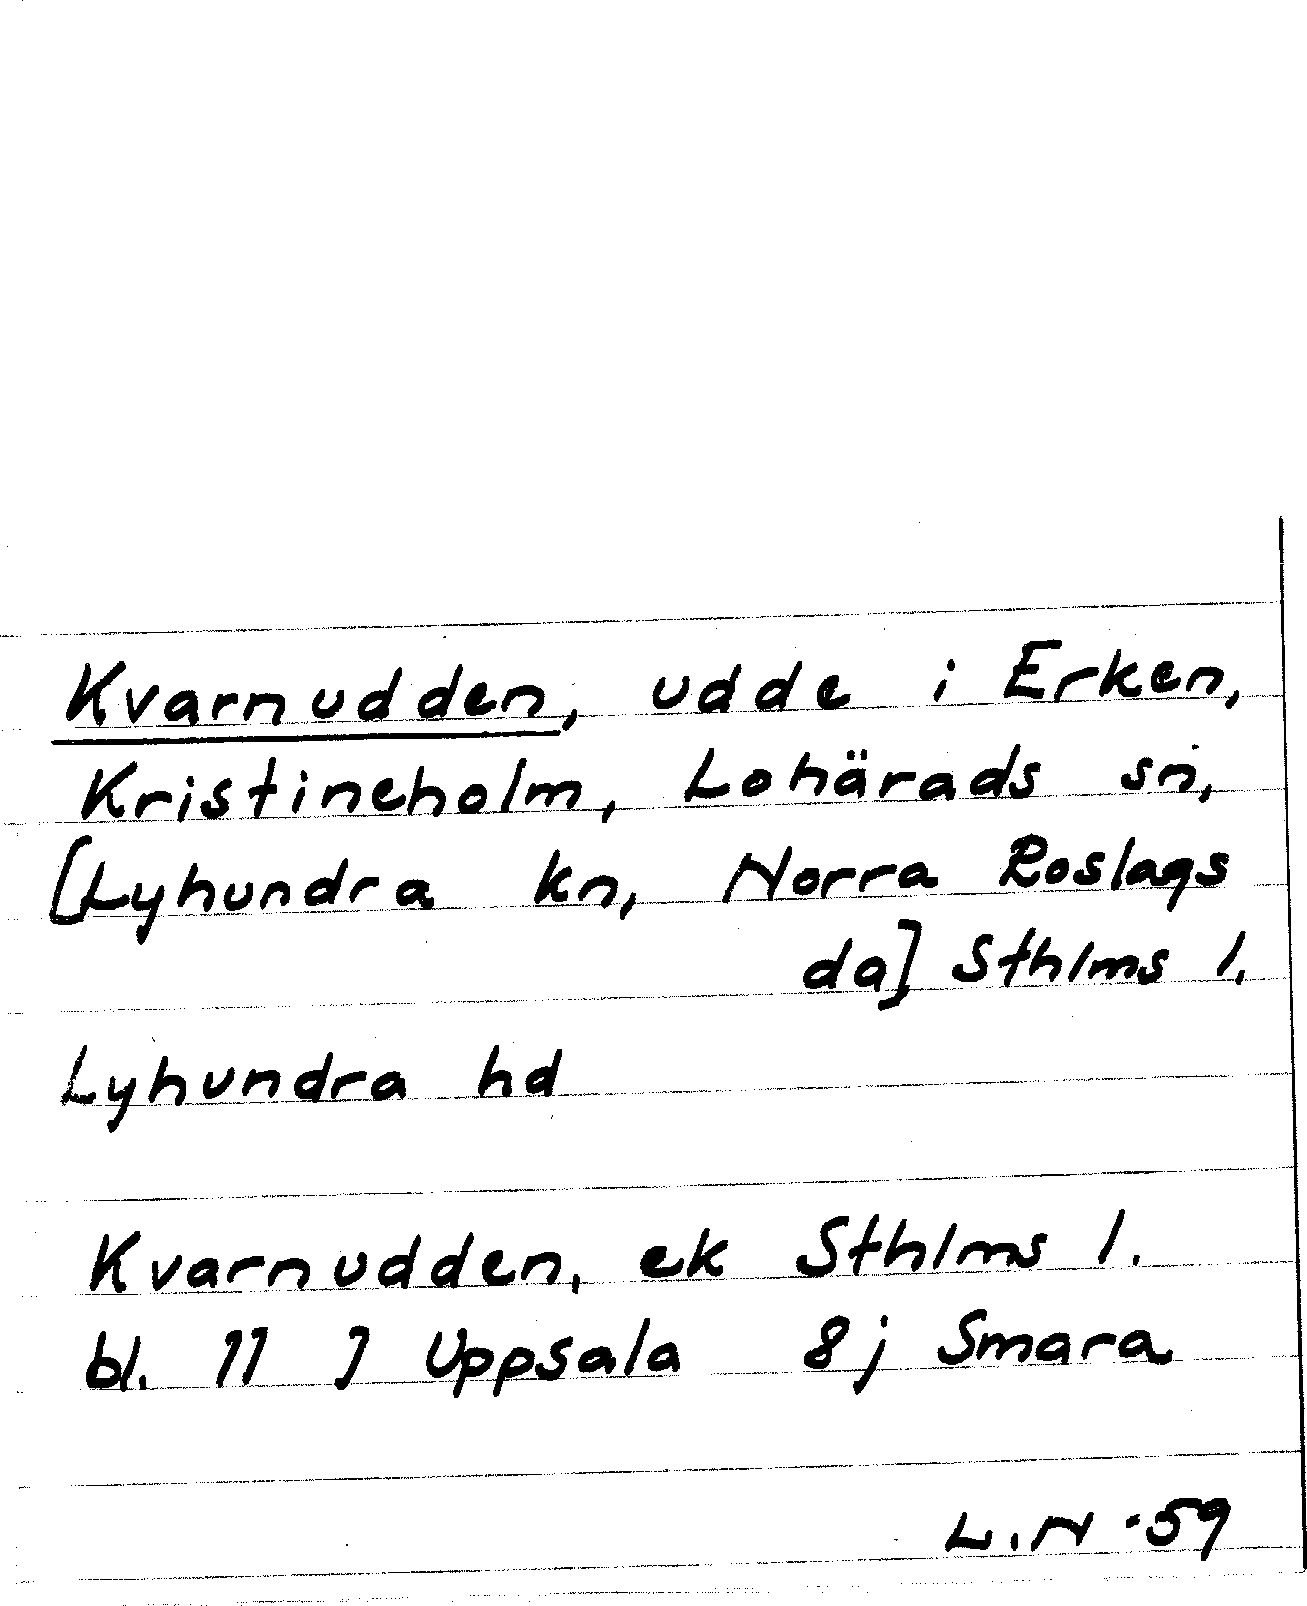 Kvarnudden, udde i Erken,
Kristineholm, Lohärads sn,
[Lyhundra kn, Norra Roslags
da] Sthlms l.
Lyhundra hd
Kvarnudden, ek Sthlms l.
bl. 11 J Uppsala 8j Smara
L.N -59